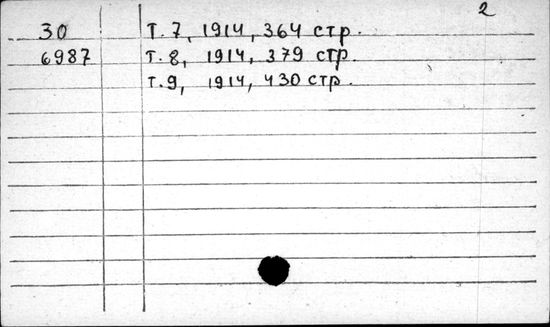 2
30 т. 7, 1914, 364 стр.
6987 т. 8, 1914, 379 стр.
т. 9, 1914, 430 стр.